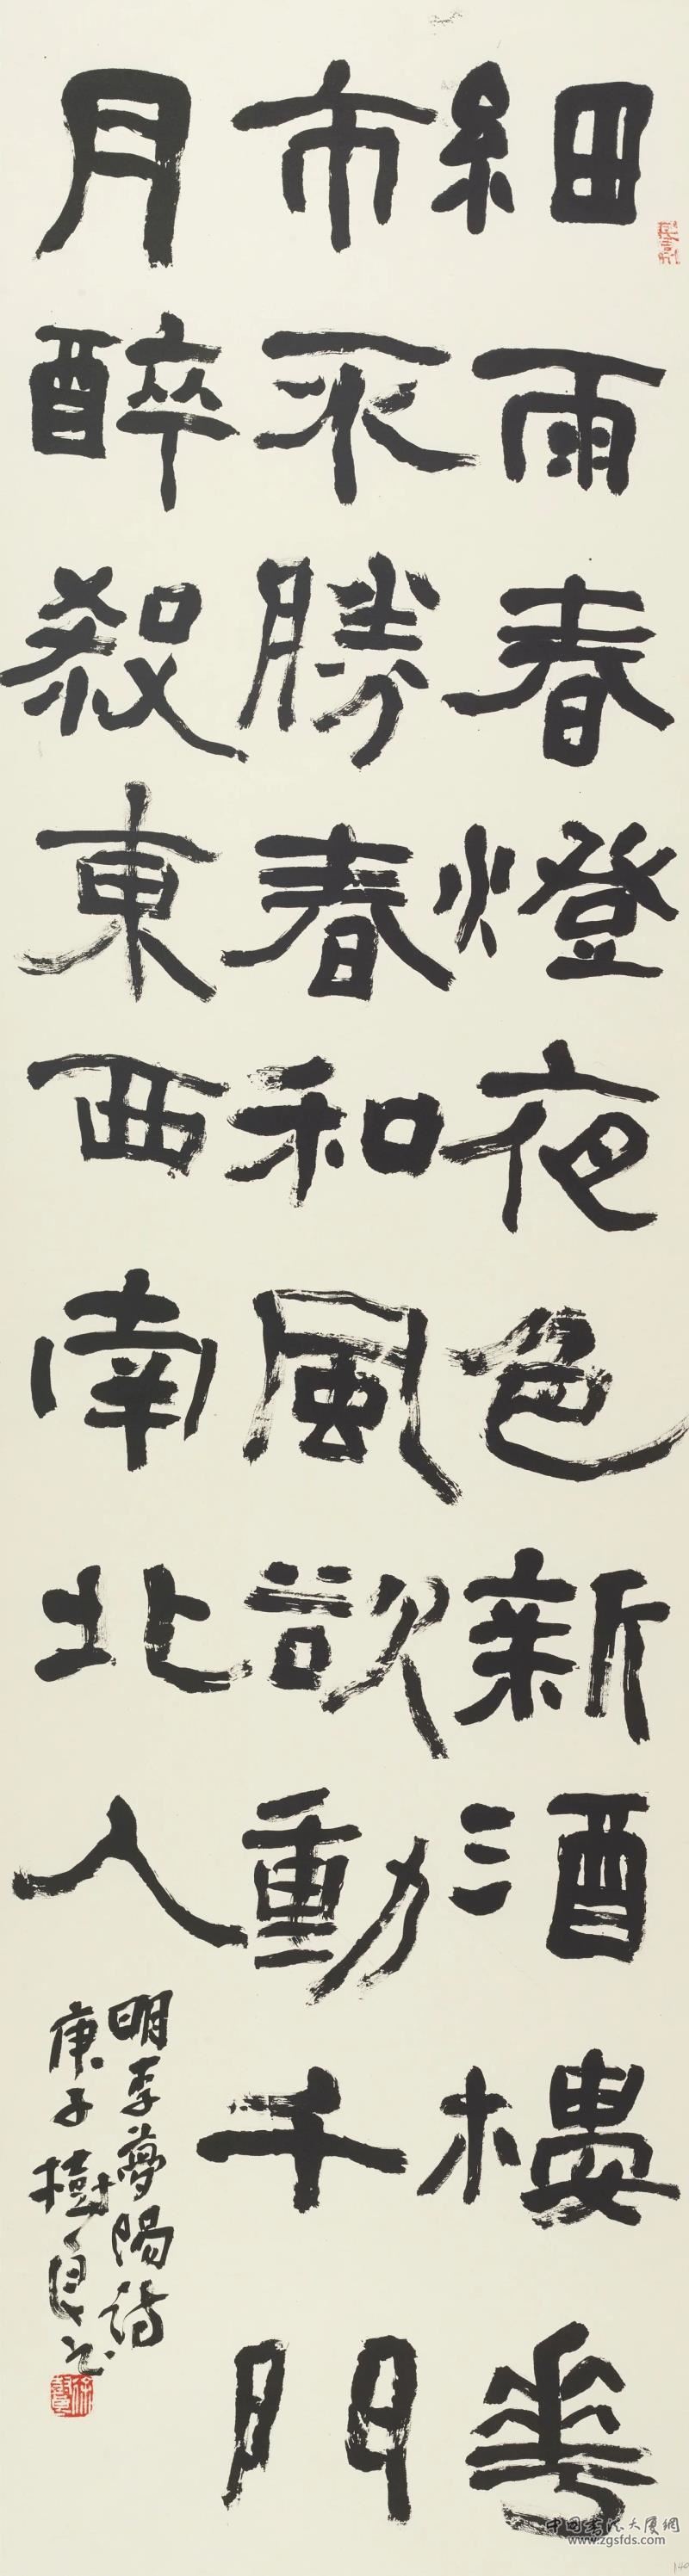 細雨春燈夜色新酒樓華
市不勝春和風欲動千門
月醉殺東西南北人
明李夢陽詩
庚子樹良书
中国书法大厦網
www.zgsfds.com